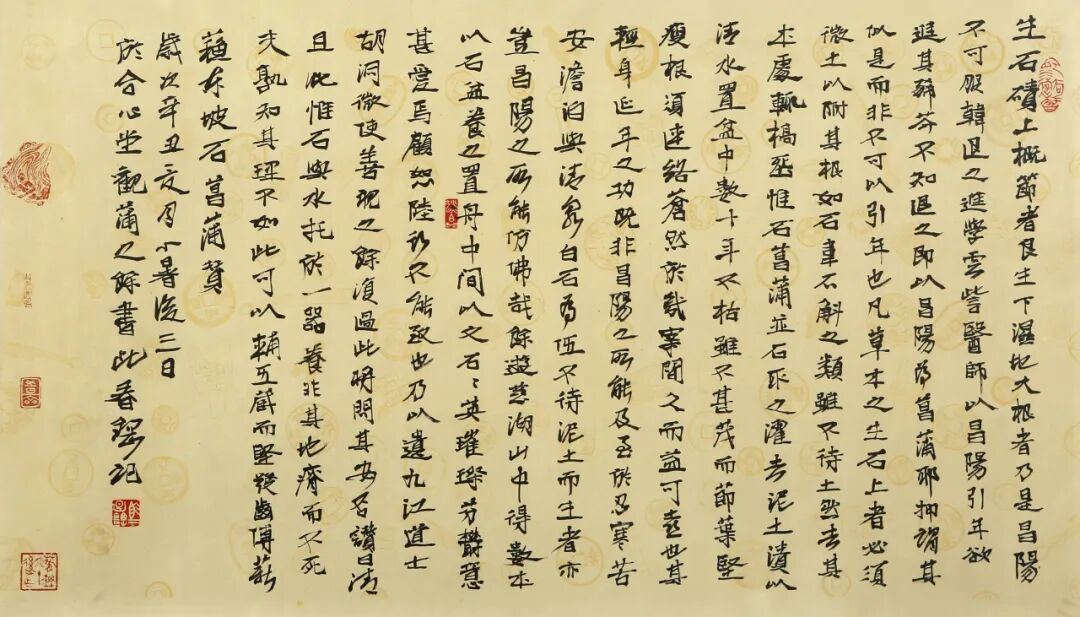 生石磧上概節者良生下濕地大根者乃是昌陽
不可服韓退之進學雲訾醫師以昌陽引年欲
進其豨苓不知退之即以昌陽為菖蒲耶抑謂其
似是而非不可以引年也凡草木之生石上者必須
微土以附其根如石韋石斛之類雖不待土然去其
本處輒槁然惟石菖蒲並石取之濯去泥土漬以
清水置盆中數十年不枯雖不甚茂而節葉堅
瘦根須連絡蒼然於幾案間久而益可喜也其
輕身延年之功既非昌陽之所能及至於忍寒苦
安澹泊與清泉白石為伍不待泥土而生者亦
豈昌陽之所能仿佛哉餘遊慈湖山中得數本
以石盆養之置舟中間以文石々英璀璨芬鬱意
甚愛焉顧恐陸行不能致也乃以遺九江道士
胡洞微使善視之餘復過此將問其安否讚曰清
且泚惟石與水托於一器養非其地瘠而不死
夫孰知其理不如此可以輔五藏而堅髮齒傅薪
蘇東坡石菖蒲贊
歲次辛丑夏月小暑後三日
於合心堂觀蒲之餘書此春記